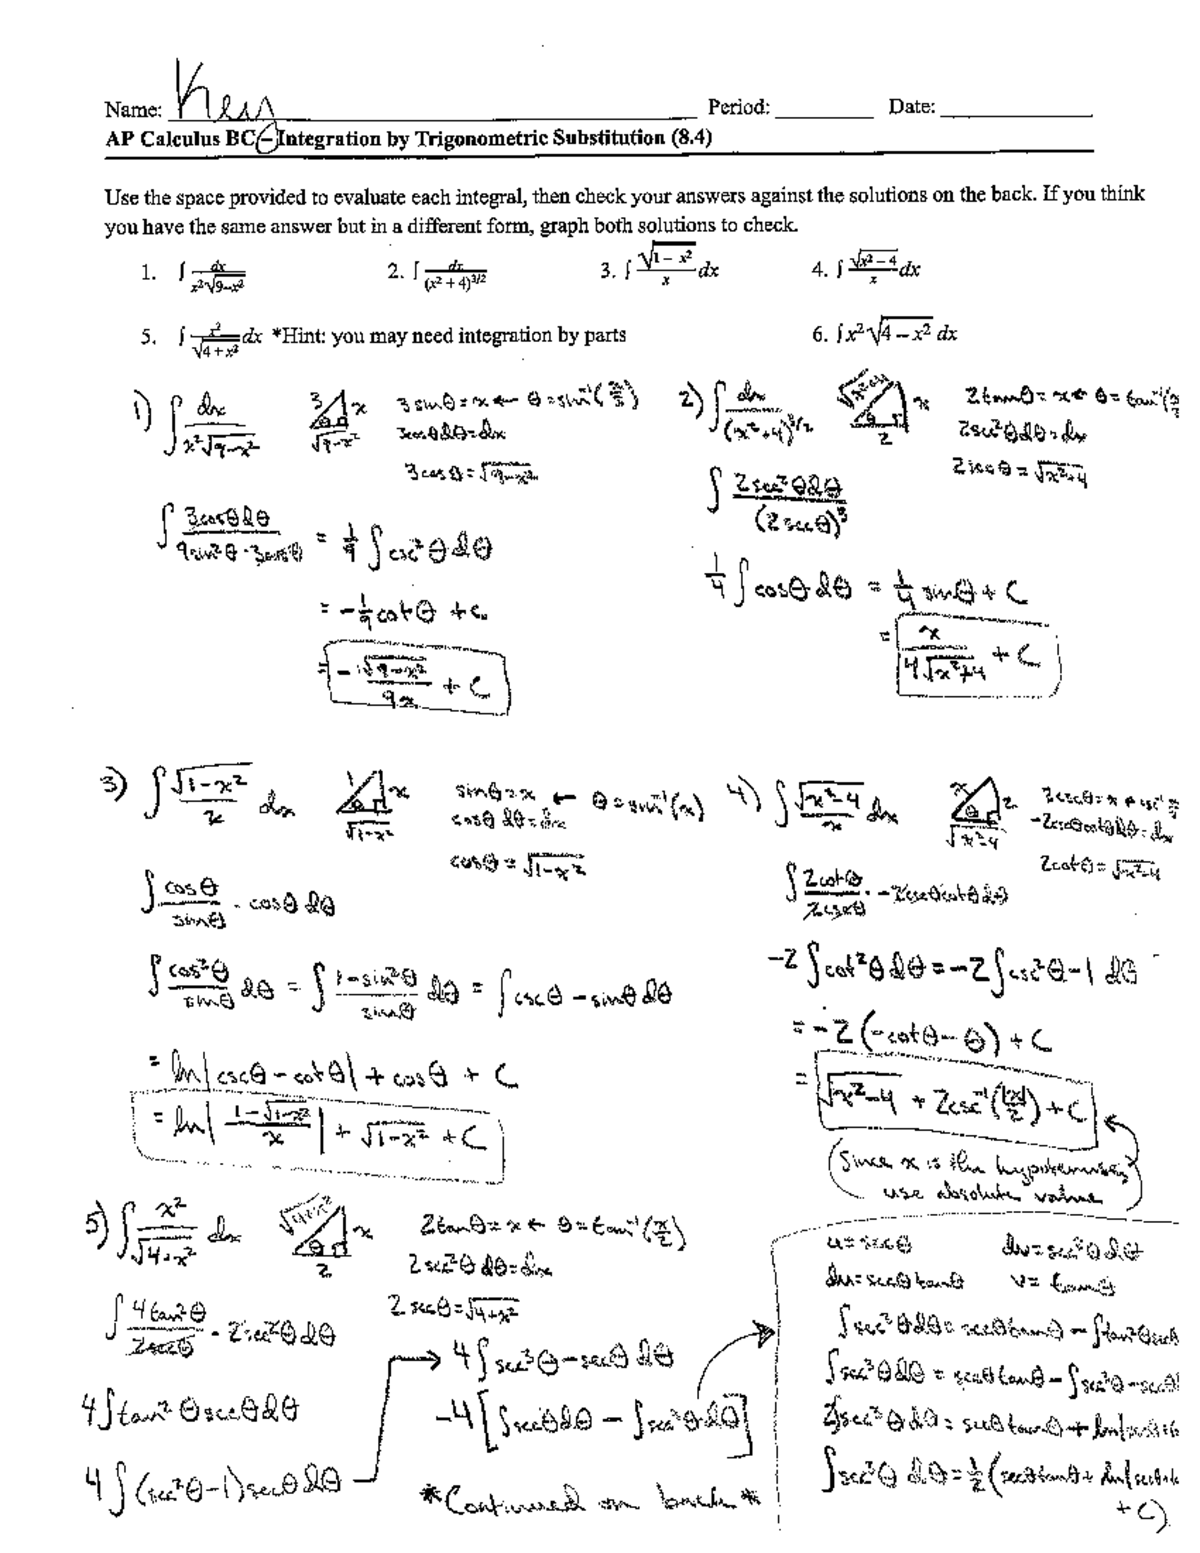 Name: Key Period: ________ Date: ________
AP Calculus BC – Integration by Trigonometric Substitution (8.4)
Use the space provided to evaluate each integral, then check your answers against the solutions on the back. If you think
you have the same answer but in a different form, graph both solutions to check.
1. ∫ dx/(x²√(9−x²)) 2. ∫ dx/(x² + 4)^(3/2) 3. ∫ √(1 − x²)/x dx 4. ∫ √(x² − 4)/x dx
5. ∫ x²/√(4 + x²) dx *Hint: you may need integration by parts 6. ∫x²√(4 − x²) dx
1) ∫ dx/(x²√(9−x²)) 3 x √(9−x²) θ 3sinθ = x ← θ = sin⁻¹(x/3)
3cosθdθ = dx
3cosθ = √(9−x²)
∫ 3cosθdθ/(9sin²θ · 3cosθ) = 1/9 ∫csc²θdθ
= −1/9 cotθ + C
= −√(9−x²)/(9x) + C
2) ∫ dx/(x²+4)^(3/2) √(x²+4) x 2 θ 2tanθ = x ← θ = tan⁻¹(x
2sec²θdθ = dx
2secθ = √(x²+4)
∫ 2sec²θdθ/(2secθ)³
1/4 ∫cosθdθ = 1/4 sinθ + C
= x/(4√(x²+4)) + C
3) ∫ √(1−x²)/x dx 1 x √(1−x²) θ sinθ = x ← θ = sin⁻¹(x)
cosθ dθ = dx
cosθ = √(1−x²)
∫ cosθ/sinθ · cosθdθ
∫ cos²θ/sinθ dθ = ∫ (1−sin²θ)/sinθ dθ = ∫cscθ − sinθdθ
= ln|cscθ − cotθ| + cosθ + C
= ln|(1−√(1−x²))/x| + √(1−x²) + C
4) ∫ √(x²−4)/x dx x 2 √(x²−4) θ 2cscθ = x
−2cscθcotθdθ = dx
2cotθ = √(x²−4)
∫ 2cotθ/2cscθ · −2cscθcotθdθ
−2∫cot²θdθ = −2∫csc²θ−1 dθ
= −2(−cotθ − θ) + C
= √(x²−4) + 2csc⁻¹(|x|/2) + C
(Since x is the hypotenuse,
use absolute value)
5) ∫ x²/√(4+x²) dx √(4+x²) x 2 θ 2tanθ = x ← θ = tan⁻¹(x/2)
2sec²θdθ = dx
2secθ = √(4+x²)
∫ 4tan²θ/2secθ · 2sec²θdθ
4∫tan²θsecθdθ
4∫(sec²θ−1)secθdθ
→ 4∫sec³θ − secθdθ
−4[∫secθdθ − ∫sec³θdθ]
*Continued on back*
u = secθ dv = sec²θdθ
du = secθtanθ v = tanθ
∫sec³θdθ = secθtanθ − ∫tan²θsecθ
∫sec³θdθ = secθtanθ − ∫sec³θ − secθ
2∫sec³θdθ = secθtanθ + ln|secθ+t
∫sec³θdθ = 1/2(secθtanθ + ln|secθ+t
+ C)